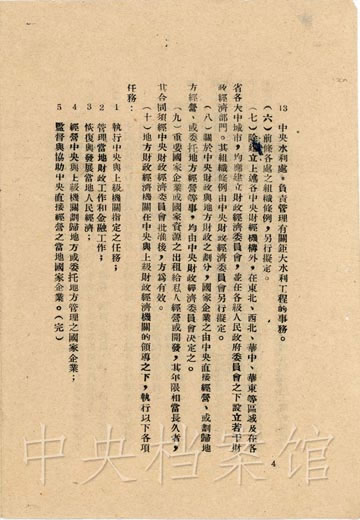 13 中央水利處。負責管理有關鉅大水利工程的事務。
（六）前條各處之組織條例，另行擬定。
（七）除建立上述各中央財經機構外，在東北、西北、華中、華東等區域及在各
省各大中城市，均應建立財政經濟委員會，並在各級人民政府委員會之下設立若干財
政經濟部門。其組織條例由中央財政經濟委員會另行擬定。
（八）關於中央財政與地方財政之劃分，國家企業之由中央直接經營、或劃歸地
方經營、或委托地方經營等事，均由中央財政經濟委員會決定之。
（九）重要國家企業或國家資源之出租給私人經營或開發，其年限相當長久者，
其合同須經中央財政經濟委員會批准後，方為有效。
（十）地方財政經濟機關在中央與上級財政經濟機關的領導之下，執行以下各項
任務：
1 執行中央與上級機關指定之任務；
2 管理當地財政工作和金融工作；
3 恢復與發展當地人民經濟；
4 經營中央與上級機關劃歸地方或委托地方管理之國家企業；
5 監督與協助中央直接經營之當地國家企業。（完）
4
中央档案馆